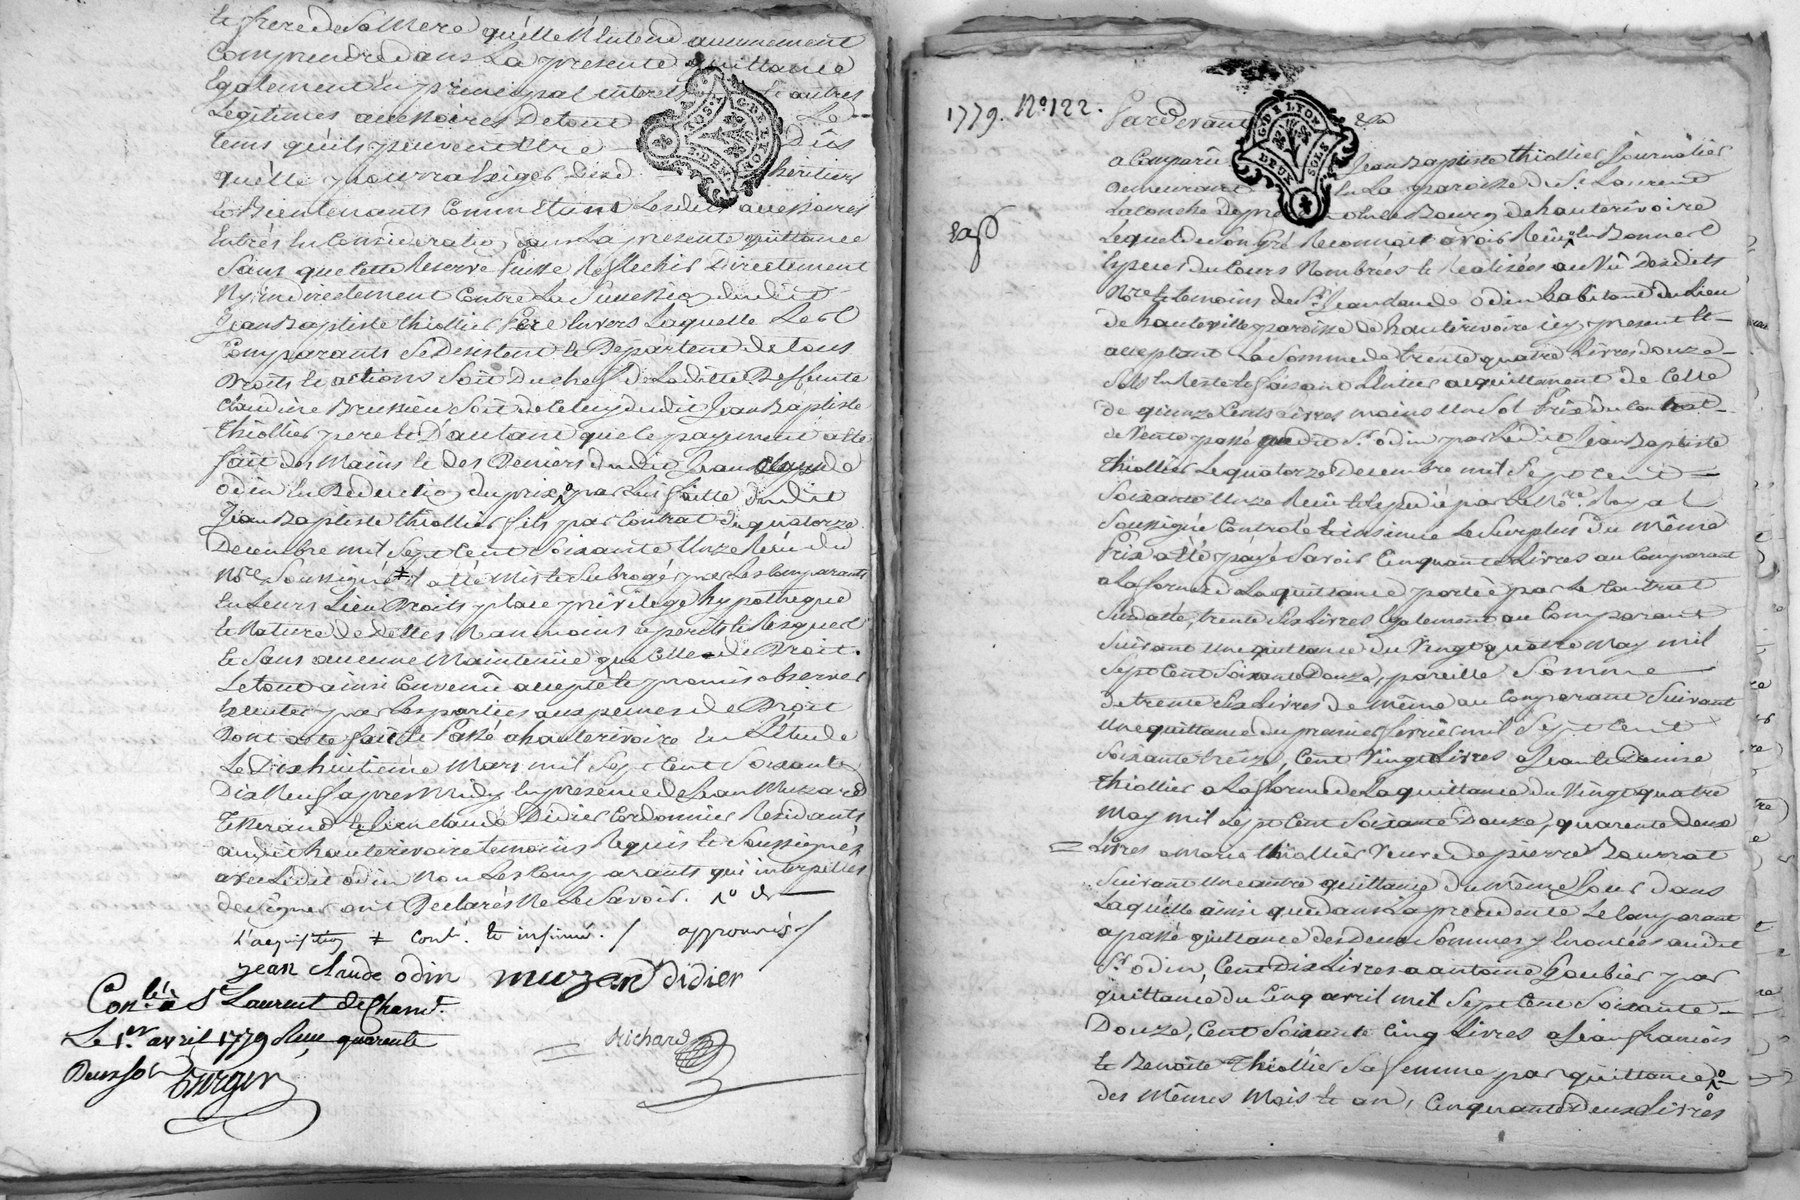 le frere de sa Mere qu'elle N'Entend aucunement
Comprendre dans La presente quittance
Egalement En principal interets le autres
Legitimes accessoires De tout Le
tems qu'ils peuvent Etre Dûs
qu'elle pourra Exiger Desd. héritiers
le Bientenants Comm' Etant Lesdits accessoires
Entrés En Consideration dans La presente quittance
Sans que Cette Reserve Puisse Reflechir Directement
Ny indirectement Contre La Succession dudit
Jean Baptiste thiollier Pere Envers Laquelle Les
Comparants Se Desistent le Departent de tous
Droits le actions Soit Du chef de Laditte Deffunte
Claudine Brussieu Soit de Celuy dudit Jean Baptiste
Thiollier pere le D'autant que le payement a Eté
fait des Mains le des Deniers dudit Jean Claude
Odin En Deduction du prix par Luy faitte dudit
Jean Baptiste thiollier fils par Contrat du quatorze
Decembre mil Sept Cent Soixante Unze Reçu du
Nore Soussigné ≠ il a Eté Mis le Subrogé par Les Comparants
En Leurs Lieu Droits place privilege hypotheque
le Nature de Dettes Neanmoins a perils le Risques
le Sans aucune Maintenüe que Celle de Droit.
Le tout ainsi Convenu accepté le promis observer
Executer par Les parties aux peines de Droit
Dont acte fait le Passé a hauterivoire En L'Etude
Le Dix huitieme Mars mil Sept Cent Soixante
Dix Neuf apres Midy En presence de Jean Muzard
Tisserand le Jean Claude Didier Cordonnier Residants
audit hauterivoire temoins Requis le Soussignés
avec Ledit Odin Non Les Comparants qui interpellés
de Signer ont Declarés Ne Le Savoir.
L'acquisition ≠ cont. le insinué. / approuvés /
jean claude odin muzard didier
Con.lé à St Laurent de Cham.t
Le 1.er avril 1779 Reçu quarente
Deux sols
Richard
1779. No. 122. Pardevant
a Comparû Jean Baptiste thiollier Journalier
Demeurant En La paroisse de St. Laurent
Bourg de hauterivoire
Exp.d
Lequel de Son Gré Reconnoit avoir Reçu En Bonnes
Especes du Cours Nombrées le Realisées au Vû Desdits
Nore le temoins de Sr. Jean Claude Odin habitant du Lieu
de hauteville paroisse de hauterivoire icy present le
acceptant La Somme de trente quatre Livres Douze
Sols En Reste le faisant L'Entier acquittement de Celle
de quinze Cents Livres moins Un Sol Prix du Contrat
de Vente passé audit Sr. Odin par Ledit Jean Baptiste
thiollier Le quatorze Decembre mil Sept Cent
Soixante Unze Reçu le Expedié par Le Nore. Royal
Soussigné Controlé le insinué Le Surplus Du Même
Prix a Eté payé Savoir Cinquante Livres au Comparant
a La forme de La quittance portée par Le Contrat
Susdatté, trente Six Livres Egalement au Comparant
Suivant Une quittance du Vingt quatre May mil
Sept Cent Soixante Douze, pareille Somme
de trente Six Livres De même au Comparant Suivant
Une quittance du premier fevrier mil Sept Cent
Soixante treize, Cent Vingt Livres a Jean le Denise
Thiollier a La forme de La quittance du Vingt quatre
May mil Sept Cent Soixante Douze, quarente Deux
= Livres a Marie thiollier Veuve de pierre Bourrat
Suivant Une autre quittance du Même Jour Dans
Laquelle ainsi que dans La precedente Le Comparant
a passé quittance des deux Sommes y Enoncées audit
Sr. Odin, Cent Dix Livres a antoine Goubier par
quittance du Cinq avril mil Sept Cent Soixante
Douze, Cent Soixante Cinq Livres a Jean françois
le Benoite Thiollier Sa femme par quittance
des Mêmes Mois le an, Cinquante deux Livres